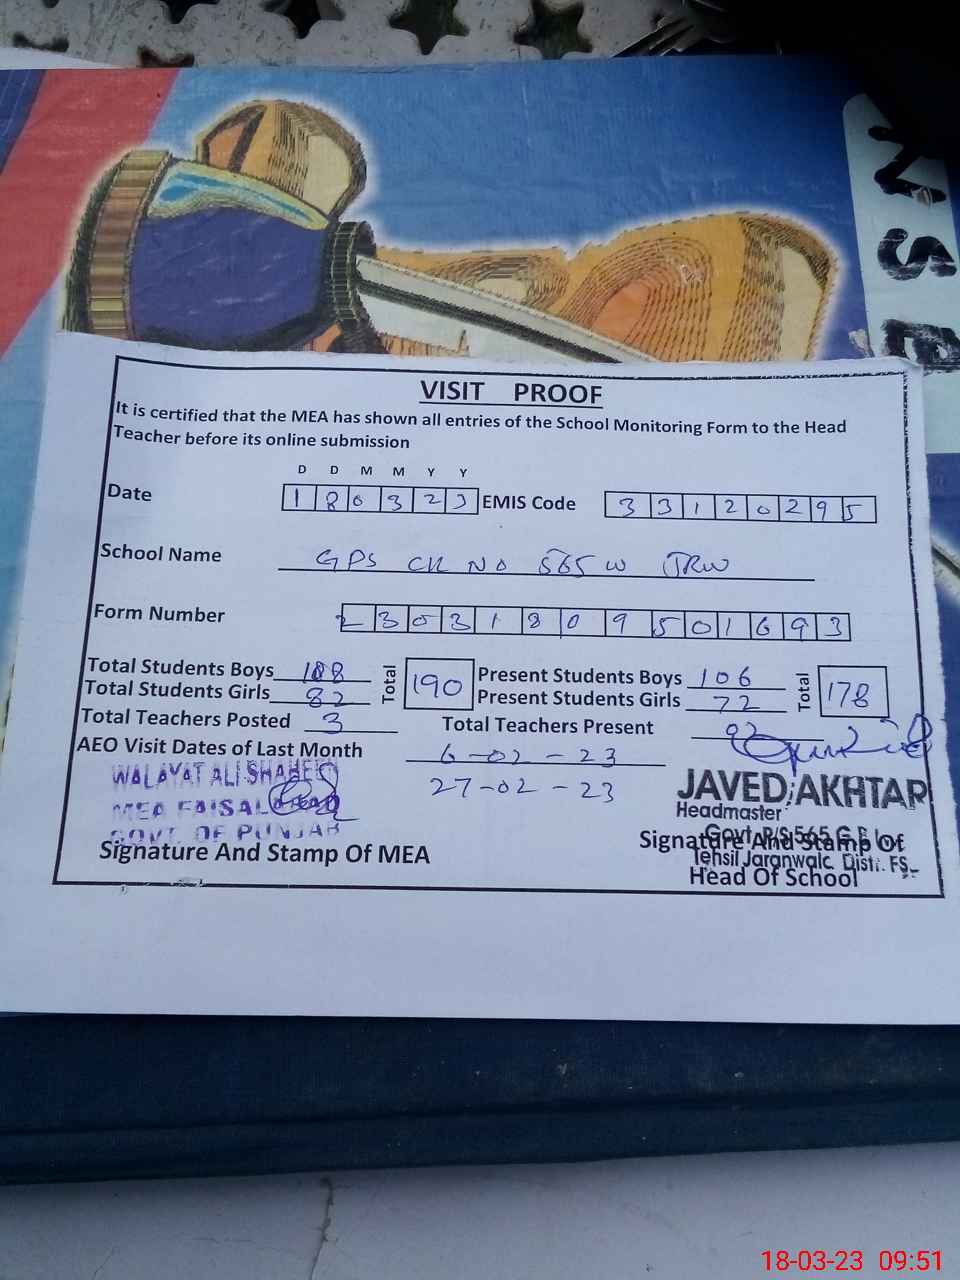 VISIT PROOF
It is certified that the MEA has shown all entries of the School Monitoring Form to the Head
Teacher before its online submission
D D M M Y Y
Date 1 8 0 3 2 3 EMIS Code 3 3 1 2 0 2 9 5
School Name GPS CK NO 565 W JRW
Form Number 2 3 0 3 1 8 0 9 5 0 1 6 9 3
Total Students Boys 108 Total 190 Present Students Boys 106 Total 178
Total Students Girls 82 Present Students Girls 72
Total Teachers Posted 3 Total Teachers Present 02
AEO Visit Dates of Last Month 6-02-23
27-02-23
WALAYAT ALI SHAHEED
MEA FAISALABAD
GOVT. OF PUNJAB
Signature And Stamp Of MEA
JAVED AKHTAR
Headmaster
Govt. P/S 565 G.B
Tehsil Jaranwala Distt. FS
Signature And Stamp Of
Head Of School
18-03-23 09:51